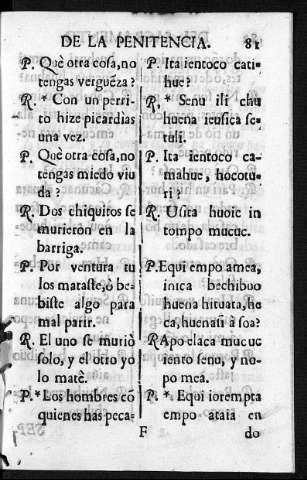 DE LA PENITENCIA. 81
P. Què otra cosa, no
tengas verguẽza?
R. * Con un perri-
to hize picardìas
una vez.
P. Què otra cosa, no
tengas miedo viu
da?
R. Dos chiquitos se
murieron en la
barriga.
P. Por ventura tu
los mataste, ò be-
biste algo para
mal parir.
R. El uno se muriò
solo, y el otro yo
lo matè.
P. * Los hombres cõ
quienes has peca-
P. Ita ientoco cati-
hue?
R. * Senu ili chu
huena ieusica se-
tuli.
P. Ita ientoco ca-
mahue, hocotu-
ri?
R. Usita huoie in
tompo mucuc.
P. Equi empo amea,
inica bechibuo
huena hituata, he
ca, huenasi à soa?
R Apo elaca mucuc
iento senu, y no-
po mea.
P. * Equi iorempta
empo ataia en
F do